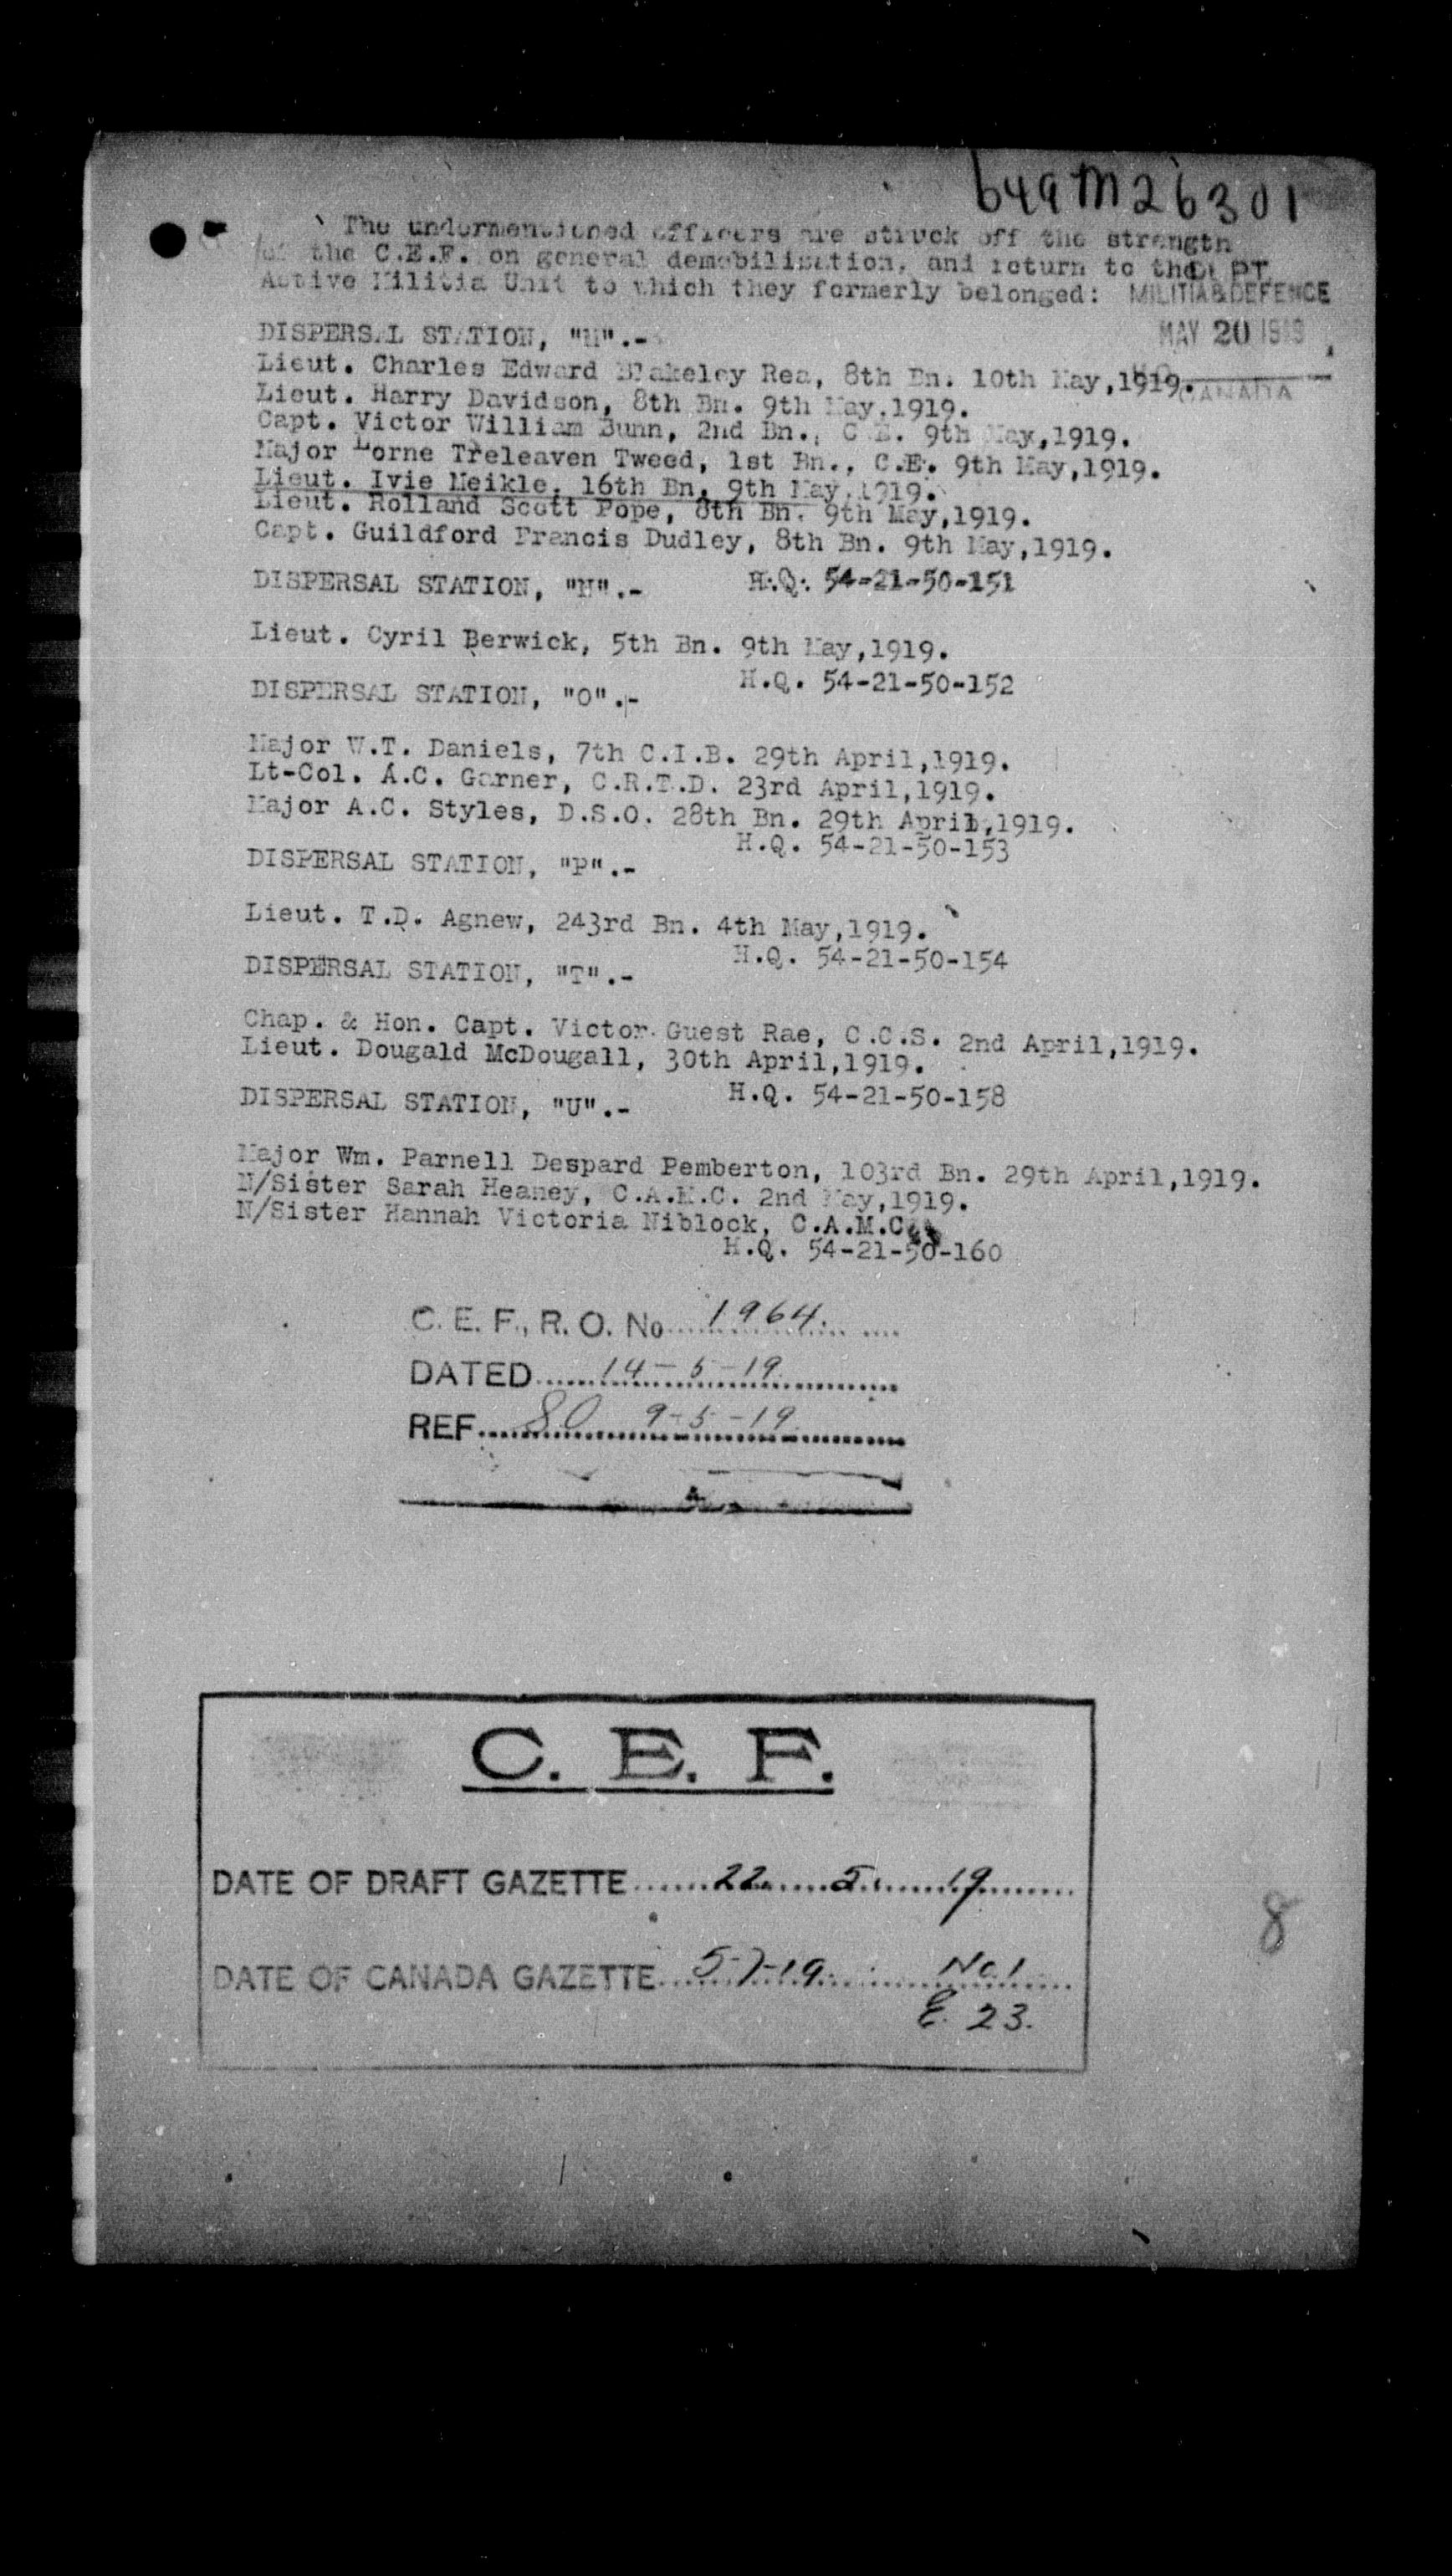 649 M 26301
The undermentioned officers are struck off the strength
of the C.E.F. on general demobilisation, and return to the
Active Militia Unit to which they formerly belonged:
DEPT.
MILITIA & DEFENCE
MAY 20 1919
H.Q.
CANADA
DISPERSAL STATION, "M".-
Lieut. Charles Edward Blakeley Rea, 8th Bn. 10th May,1919.
Lieut. Harry Davidson, 8th Bn. 9th May.1919.
Capt. Victor William Bunn, 2nd Bn., C.E. 9th May,1919.
Major Lorne Treleaven Tweed, 1st Bn., C.E. 9th May,1919.
Lieut. Ivie Meikle, 16th Bn, 9th May,1919.
Lieut. Rolland Scott Pope, 8th Bn. 9th May,1919.
Capt. Guildford Francis Dudley, 8th Bn. 9th May,1919.
H.Q. 54-21-50-151
DISPERSAL STATION, "N".-
Lieut. Cyril Berwick, 5th Bn. 9th May,1919.
H.Q. 54-21-50-152
DISPERSAL STATION, "O".-
Major W.T. Daniels, 7th C.I.B. 29th April,1919.
Lt-Col. A.C. Garner, C.R.T.D. 23rd April,1919.
Major A.C. Styles, D.S.O. 28th Bn. 29th April,1919.
H.Q. 54-21-50-153
DISPERSAL STATION, "P".-
Lieut. T.D. Agnew, 243rd Bn. 4th May,1919.
H.Q. 54-21-50-154
DISPERSAL STATION, "T".-
Chap. & Hon. Capt. Victor Guest Rae, C.C.S. 2nd April,1919.
Lieut. Dougald McDougall, 30th April,1919.
H.Q. 54-21-50-158
DISPERSAL STATION, "U".-
Major Wm. Parnell Despard Pemberton, 103rd Bn. 29th April,1919.
N/Sister Sarah Heaney, C.A.M.C. 2nd May,1919.
N/Sister Hannah Victoria Niblock, C.A.M.C.
H.Q. 54-21-50-160
C. E. F., R. O. No 1964.
DATED 14-5-19
REF 80 9-5-19
C. E. F.
DATE OF DRAFT GAZETTE 22. 5. 19
DATE OF CANADA GAZETTE 5-7-19 No. 1
E. 23.
8